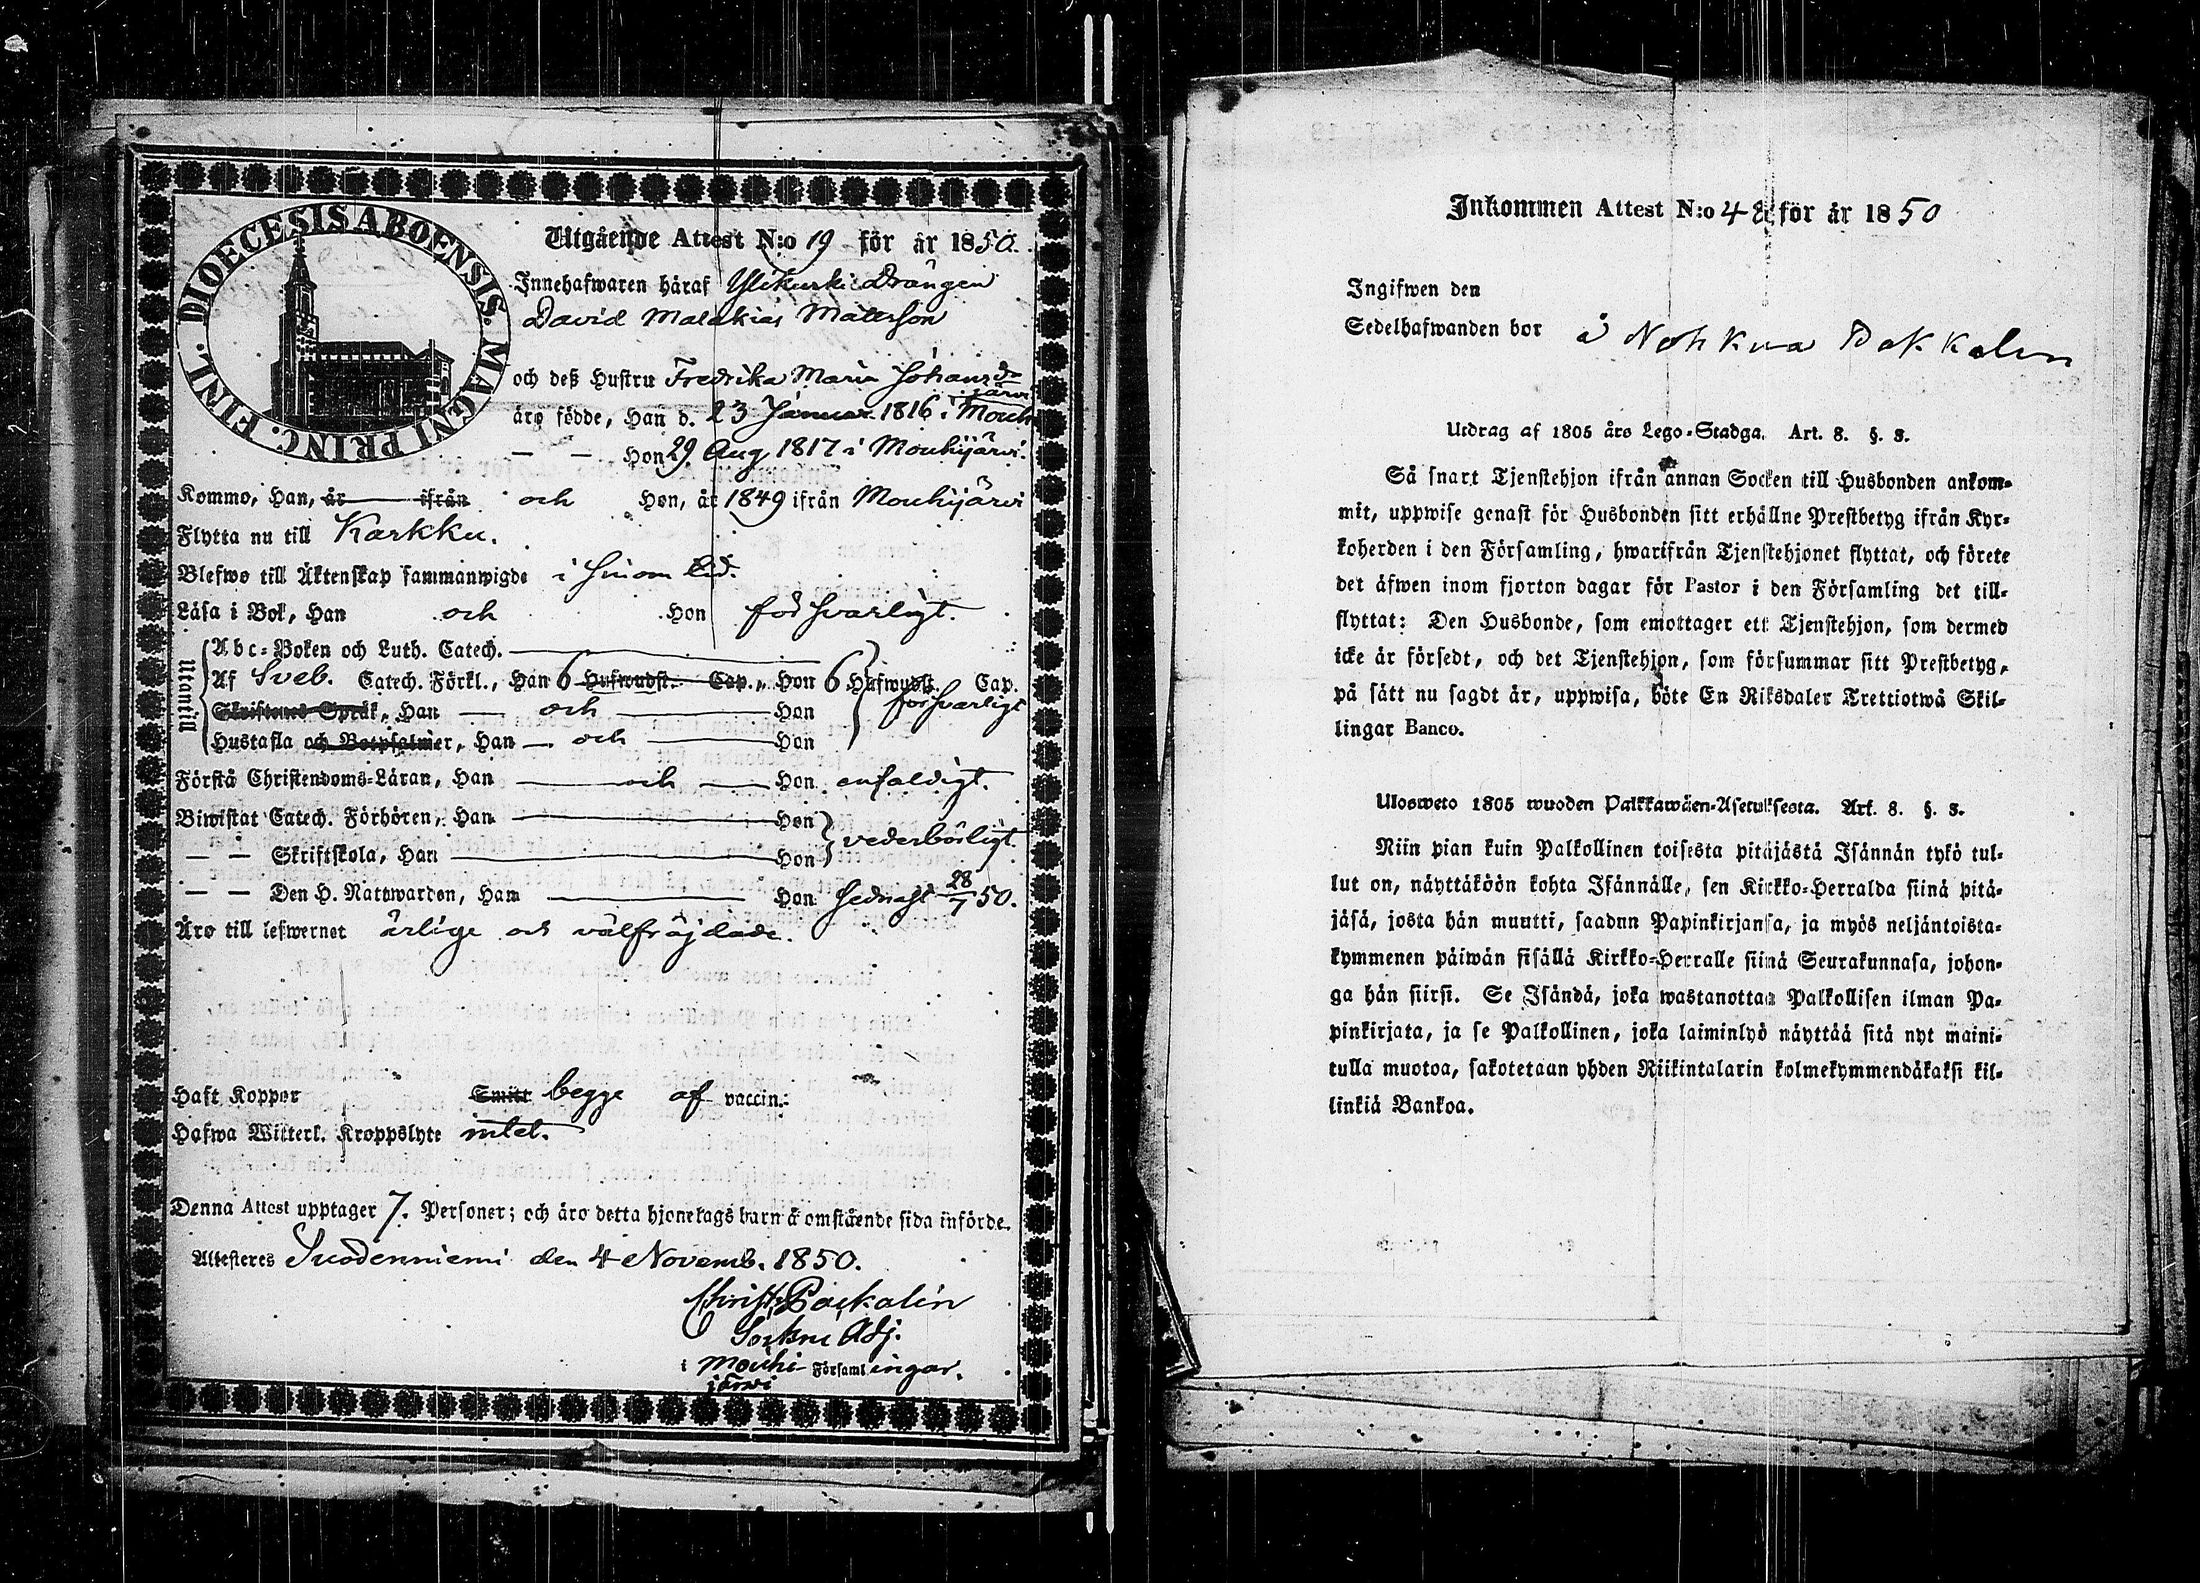 DIOECESIS ABOENSIS. MAGNI PRINC. FINL.
Utgående Attest N:o 19 för år 1850.
Innehafwaren häraf Ylikurki Drängen
David Malakias Matesson
och deß Hustru Fredrika Maria Johansd:
äro födde, Han d. 23 Januar. 1816 i Mouhi
järvi
— — Hon 29 Aug 1817 i Mouhijärvi.
Kommo, Han, år ifrån och Hon, år 1849 ifrån Mouhijärvi
Flytta nu till Karkku.
Blefwo till Äktenskap sammanwigde i sinom tid.
Läsa i Bok, Han och Hon försvarligt.
Utantill
Abc-Boken och Luth. Catech.
Af Sveb. Catech. Förkl., Han 6 Hufwudst. Cap., Hon 6 Hufwudst. Cap.
försvarligt
Skriftenes Språk, Han — och — Hon
Hustafla och Botpsalmer, Han — och — Hon
Förstå Christendoms-Läran, Han — och — Hon enfaldigt.
Biwistat Catech. Förhören, Han — Hon
vederbörligt
— — Skriftskola, Han — Hon
— — Den H. Nattwarden, Han — Hon sednast 28/7 50.
Äro till lefwernet ärlige och välfräjdade.
Haft Koppor Smitt begge af vaccin.:
Hafwa Witterl. Kroppslyte intet.
Denna Attest upptager 7. Personer; och äro detta hjonelags barn å omstående sida införde.
Attesteres Suodenniemi den 4 Novemb. 1850.
Christ. Packalén
Sockne Adj.
i Mouhi- Församl ingar.
järvi
Inkommen Attest N:o 48 för år 1850
Ingifwen den
Sedelhafwanden bor å Nohkua Pakkalan
Utdrag af 1805 års Lego-Stadga. Art. 8. §. 3.
Så snart Tjenstehjon ifrån annan Socken till Husbonden ankom-
mit, uppwise genast för Husbonden sitt erhållne Prestbetyg ifrån Kyr-
koherden i den Församling, hwarifrån Tjenstehjonet flyttat, och förete
det äfwen inom fjorton dagar för Pastor i den Församling det till-
flyttat: Den Husbonde, som emottager ett Tjenstehjon, som dermed
icke är försedt, och det Tjenstehjon, som försummar sitt Prestbetyg,
på sätt nu sagdt är, uppwisa, böte En Riksdaler Trettiotwå Skil-
lingar Banco.
Ulosweto 1805 wuoden Palkkawäen-Asetuksesta. Art. 8. §. 3.
Niin pian kuin Palkollinen toisesta pitäjästä Isännän tykö tul-
lut on, näyttäköön kohta Isännälle, sen Kirkko-Herralda siinä pitä-
jäsä, josta hän muutti, saadun Papinkirjansa, ja myös neljäntoista-
kymmenen päiwän sisällä Kirkko-Herralle siinä Seurakunnasa, johon-
ga hän siirsi. Se Isändä, joka wastanottaa Palkollisen ilman Pa-
pinkirjata, ja se Palkollinen, joka laiminlyö näyttää sitä nyt maini-
tulla muotoa, sakotetaan yhden Riikintalarin kolmekymmendäkaksi kil-
linkiä Bankoa.